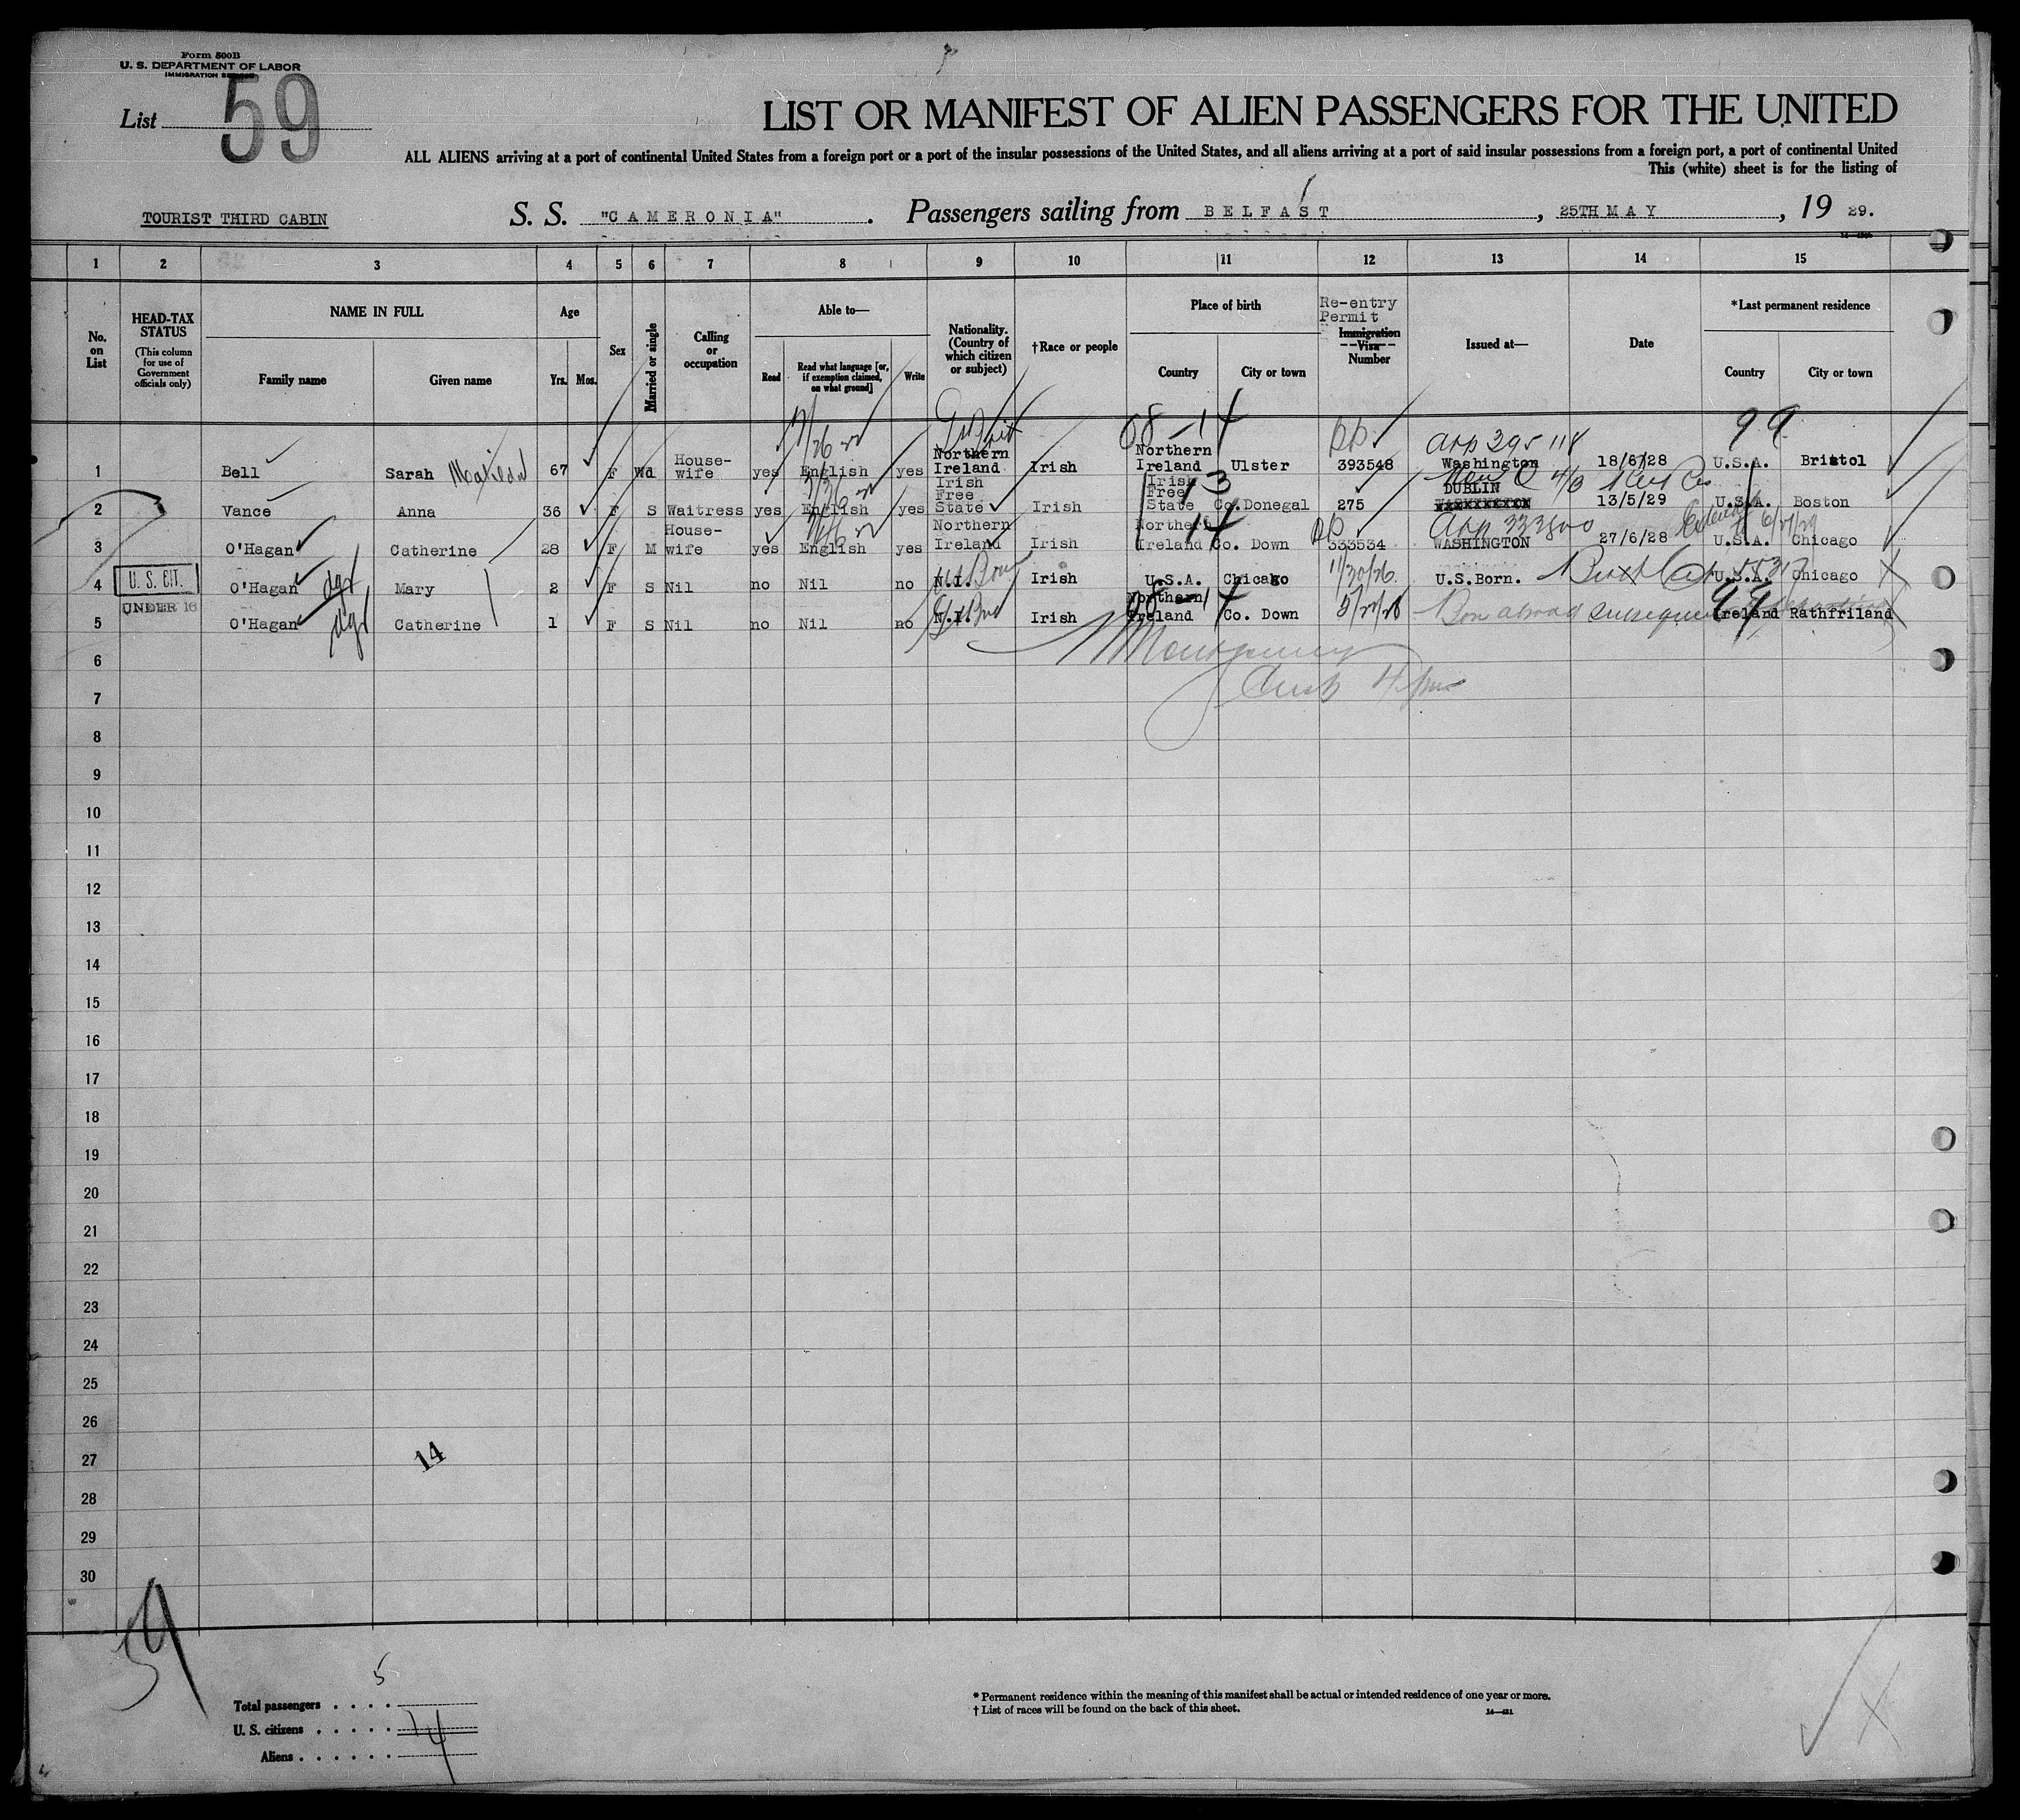 Form 500B
U. S. DEPARTMENT OF LABOR
IMMIGRATION SERVICE
List 59
LIST OR MANIFEST OF ALIEN PASSENGERS FOR THE UNITED
ALL ALIENS arriving at a port of continental United States from a foreign port or a port of the insular possessions of the United States, and all aliens arriving at a port of said insular possessions from a foreign port, a port of continental United
This (white) sheet is for the listing of
TOURIST THIRD CABIN S. S. "CAMERONIA". Passengers sailing from BELFAST, 25TH MAY, 19 29.
1 2 3 4 5 6 7 8 9 10 11 12 13 14 15
No. on List
HEAD-TAX STATUS
(This column for use of Government officials only)
NAME IN FULL
Family name Given name
Age
Yrs. Mos.
Sex
Married or single
Calling or occupation
Able to—
Read Read what language [or, if exemption claimed, on what ground] Write
Nationality. (Country of which citizen or subject)
†Race or people
Place of birth
Country City or town
Re-entry Permit
Immigration Visa Number
Issued at—
Date
*Last permanent residence
Country City or town
7/26 88-14 PP App 395118 99
1 Bell Sarah Matilda 67 F Wd House-wife yes English yes Northern Ireland Irish Northern Ireland Ulster 393548 Washington 18/6/28 U.S.A. Bristol
2 Vance Anna 36 F S Waitress yes English yes Irish Free State Irish Irish Free State Co. Donegal 275 DUBLIN 13/5/29 U.S.A. Boston
13
14 App 333500
3 O'Hagan Catherine 28 F M House-wife yes English yes Northern Ireland Irish Northern Ireland Co. Down 333534 WASHINGTON 27/6/28 U.S.A. Chicago
U. S. CIT. UNDER 16
11/20/26
4 O'Hagan dgt Mary 2 F S Nil no Nil no N.I. US Born Irish U.S.A. Chicago U.S.Born. U.S.A. Chicago
5 O'Hagan dgt Catherine 1 F S Nil no Nil no N.I. Irish Northern Ireland Co. Down Born abroad Ireland Rathfriland
99
6
7
8
9
10
11
12
13
14
15
16
17
18
19
20
21
22
23
24
25
26
27
14
28
29
30
59
5
Total passengers
U. S. citizens 1
Aliens 4
* Permanent residence within the meaning of this manifest shall be actual or intended residence of one year or more.
† List of races will be found on the back of this sheet.
14—421